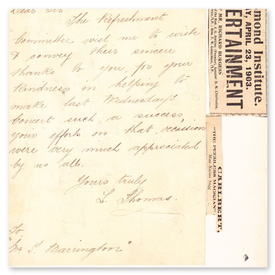 Dear Sir
The Refreshment
Committee wish me to write
& convey their sincere
thanks to you, for your
kindness in helping to
make last Wednesday's
Concert such a success,
your efforts on that occasion
were very much appreciated
by us all.
Yours truly
L. Thomas.
Mr S. Barrington
mond Institute.
Y, APRIL 23, 1903.
ERTAINMENT
CARLBERT,
"THE PEERLESS MAGICIAN"